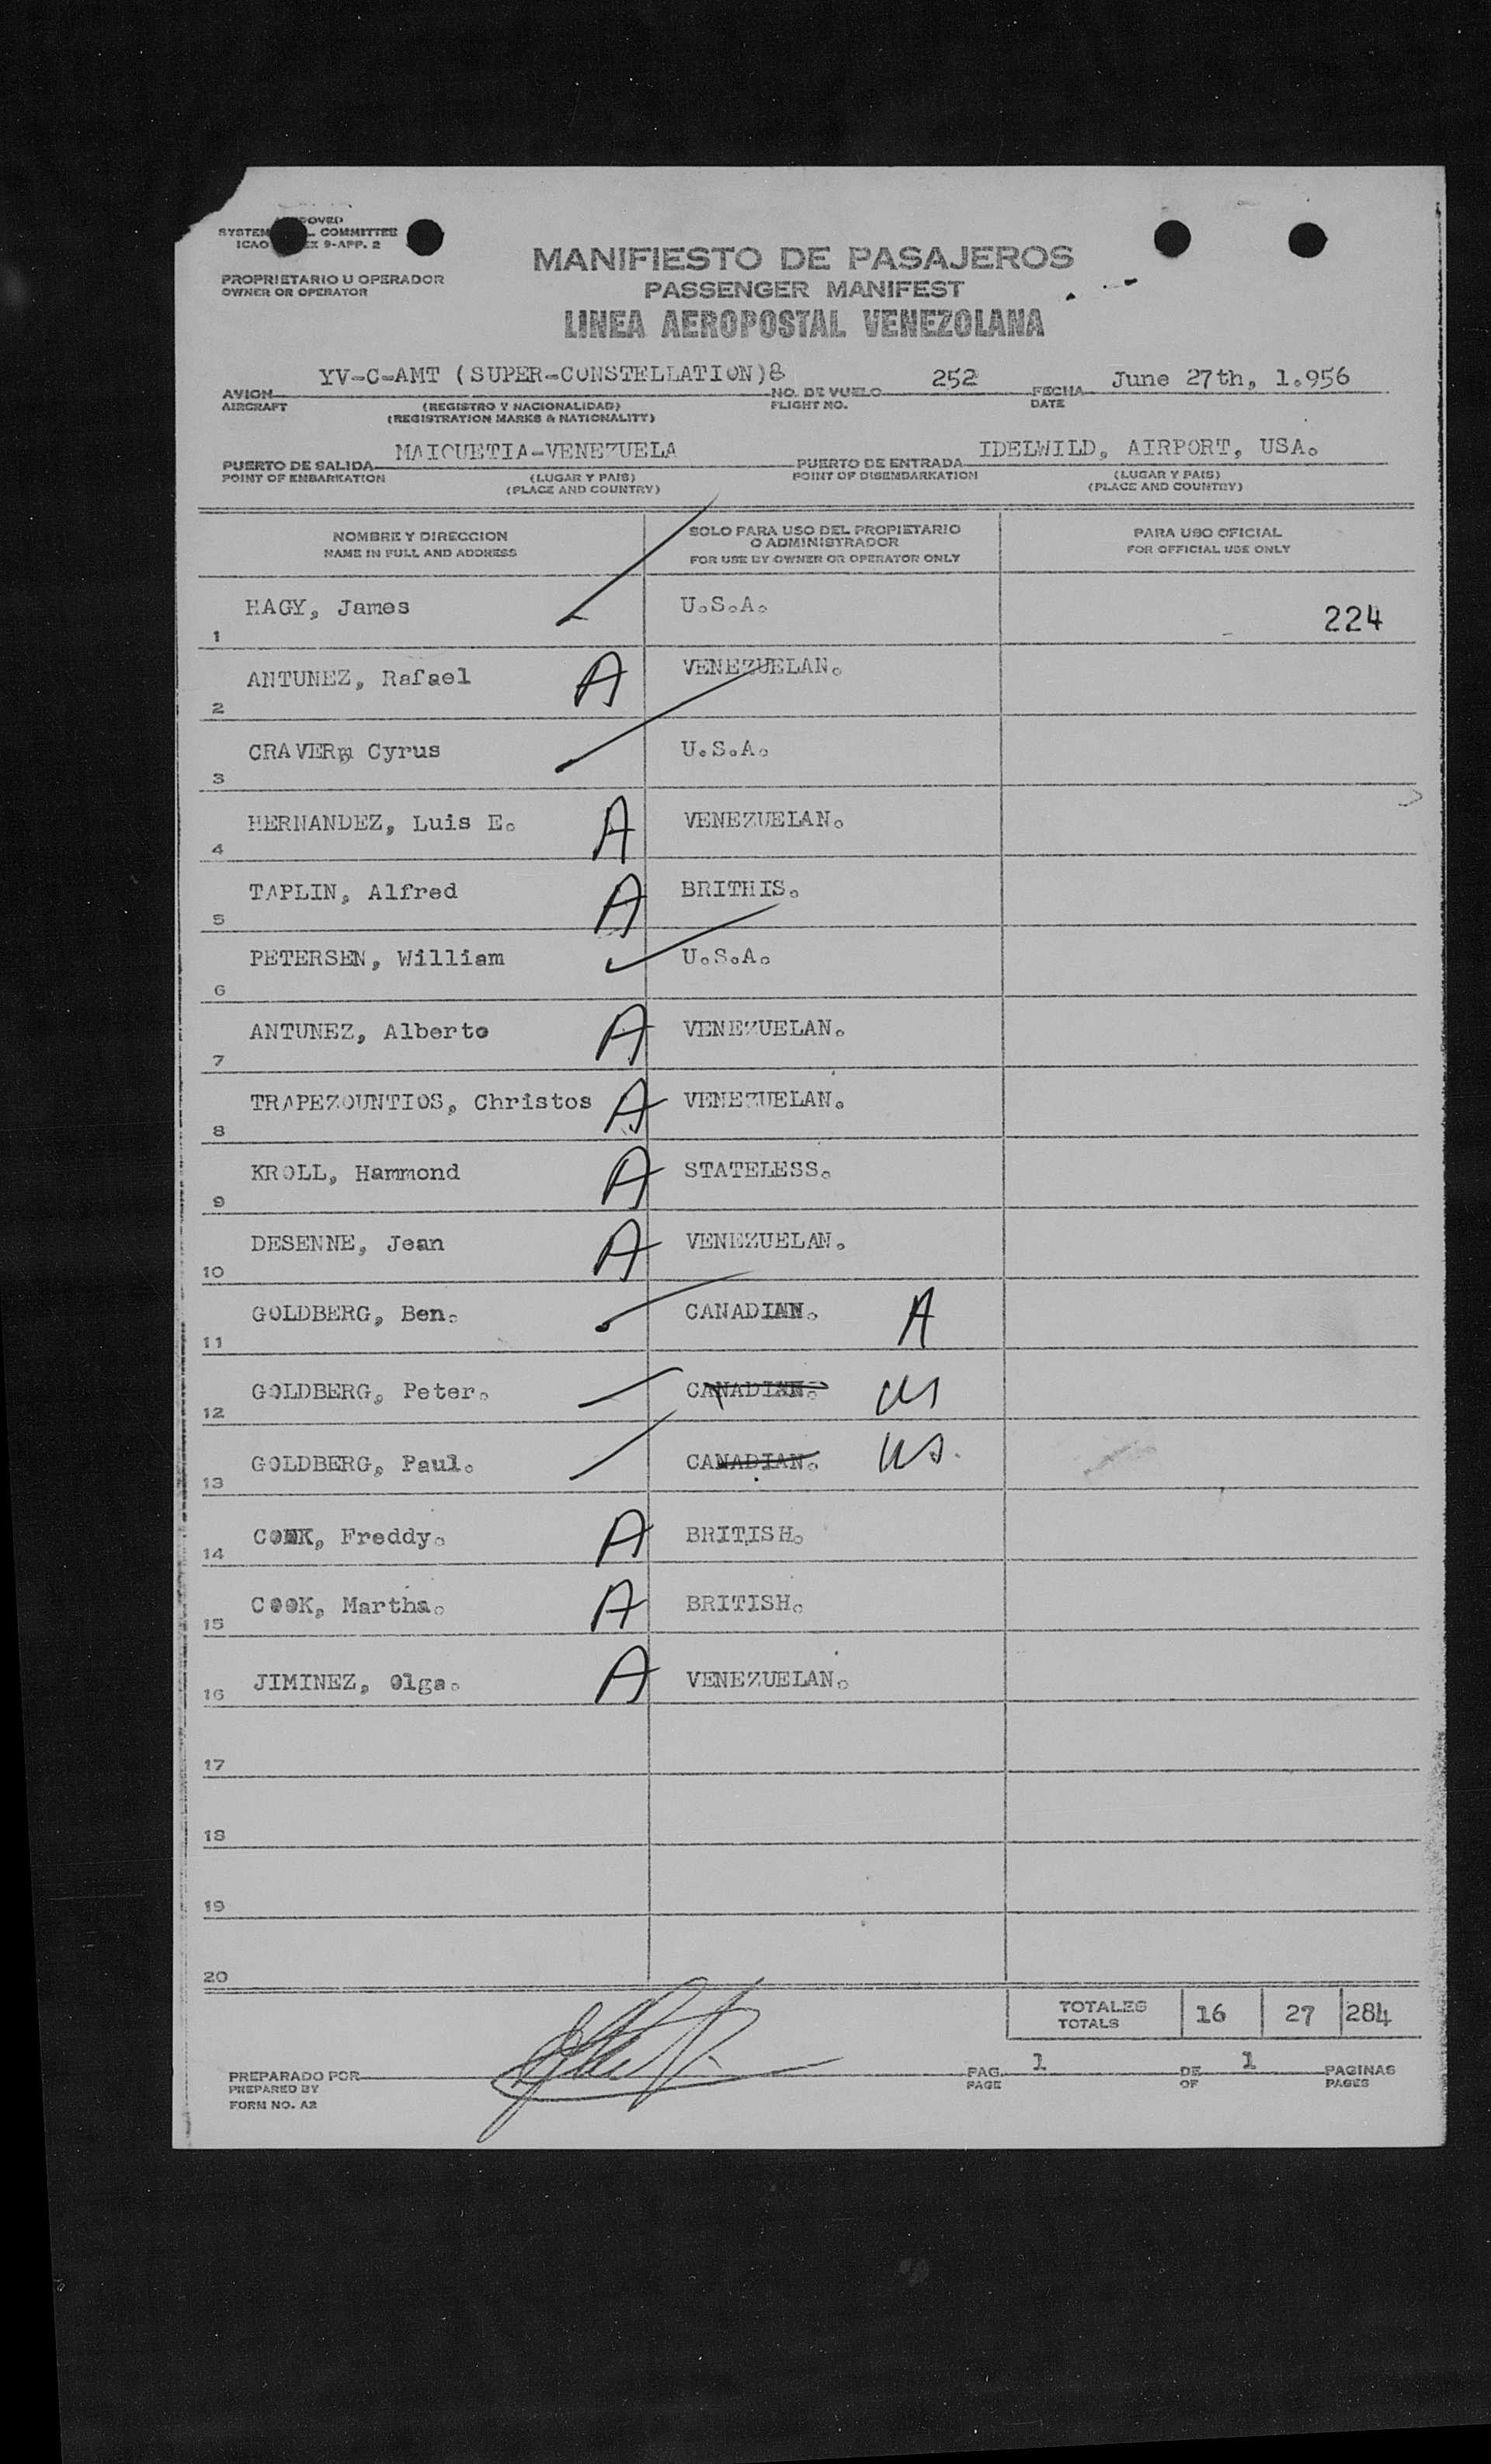 APPROVED
SYSTEM COMMITTEE
ICAO 9-APP. 2
PROPRIETARIO U OPERADOR
OWNER OR OPERATOR
MANIFIESTO DE PASAJEROS
PASSENGER MANIFEST
LINEA AEROPOSTAL VENEZOLANA
AVION YV-C-AMT (SUPER-CONSTELLATION)8 NO. DE VUELO 252 FECHA June 27th, 1.956
AIRCRAFT (REGISTRO Y NACIONALIDAD) FLIGHT NO. DATE
(REGISTRATION MARKS & NATIONALITY)
PUERTO DE SALIDA MAIQUETIA-VENEZUELA PUERTO DE ENTRADA IDELWILD, AIRPORT, USA.
POINT OF EMBARKATION (LUGAR Y PAIS) POINT OF DISEMBARKATION (LUGAR Y PAIS)
(PLACE AND COUNTRY) (PLACE AND COUNTRY)
NOMBRE Y DIRECCION SOLO PARA USO DEL PROPIETARIO PARA USO OFICIAL
O ADMINISTRADOR
NAME IN FULL AND ADDRESS FOR USE BY OWNER OR OPERATOR ONLY FOR OFFICIAL USE ONLY
1 HAGY, James U.S.A. 224
2 ANTUNEZ, Rafael A VENEZUELAN.
3 CRAVER, Cyrus U.S.A.
4 HERNANDEZ, Luis E. A VENEZUELAN.
5 TAPLIN, Alfred A BRITHIS.
6 PETERSEN, William U.S.A.
7 ANTUNEZ, Alberto A VENEZUELAN.
8 TRAPEZOUNTIOS, Christos A VENEZUELAN.
9 KROLL, Hammond A STATELESS.
10 DESENNE, Jean A VENEZUELAN.
11 GOLDBERG, Ben. CANADIAN. A
12 GOLDBERG, Peter. CANADIAN. US
13 GOLDBERG, Paul. CANADIAN. US.
14 COOK, Freddy. A BRITISH.
15 COOK, Martha. A BRITISH.
16 JIMINEZ, Olga. A VENEZUELAN.
17
18
19
20
TOTALES 16 27 284
TOTALS
PREPARADO POR PAG. 1 DE 1 PAGINAS
PREPARED BY PAGE OF PAGES
FORM NO. A2